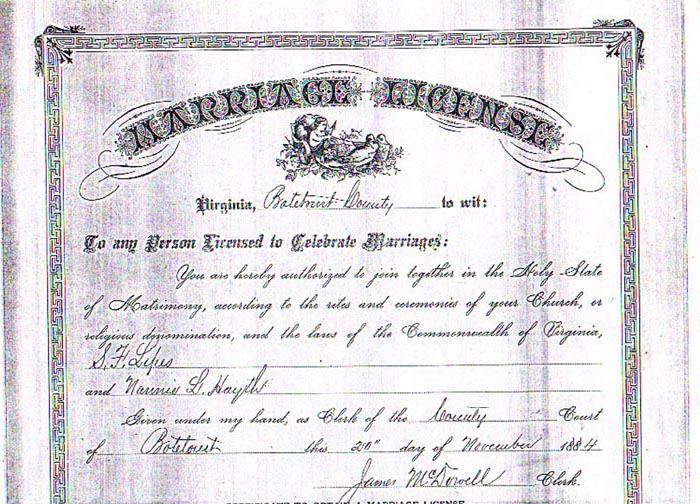 MARRIAGE LICENSE
Virginia, Botetourt County to wit:
To any Person Licensed to Celebrate Marriages:
You are hereby authorized to join together in the Holy State
of Matrimony, according to the rites and ceremonies of your Church, or
religious denomination, and the laws of the Commonwealth of Virginia,
S. F. Lipes
and Nannie L. Hayth
Given under my hand, as Clerk of the County Court
of Botetourt this 20" day of November 1884
James McDowell Clerk.
CERTIFICATE TO OBTAIN A MARRIAGE LICENSE